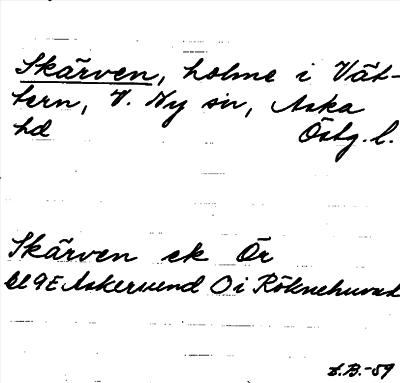 Skärven, holme i Vät-
tern, V. Ny sn, Aska
hd Östg. l.
Skärven ek Ör
bl 9E Askersund O i Röknehuvud
S.B.-59